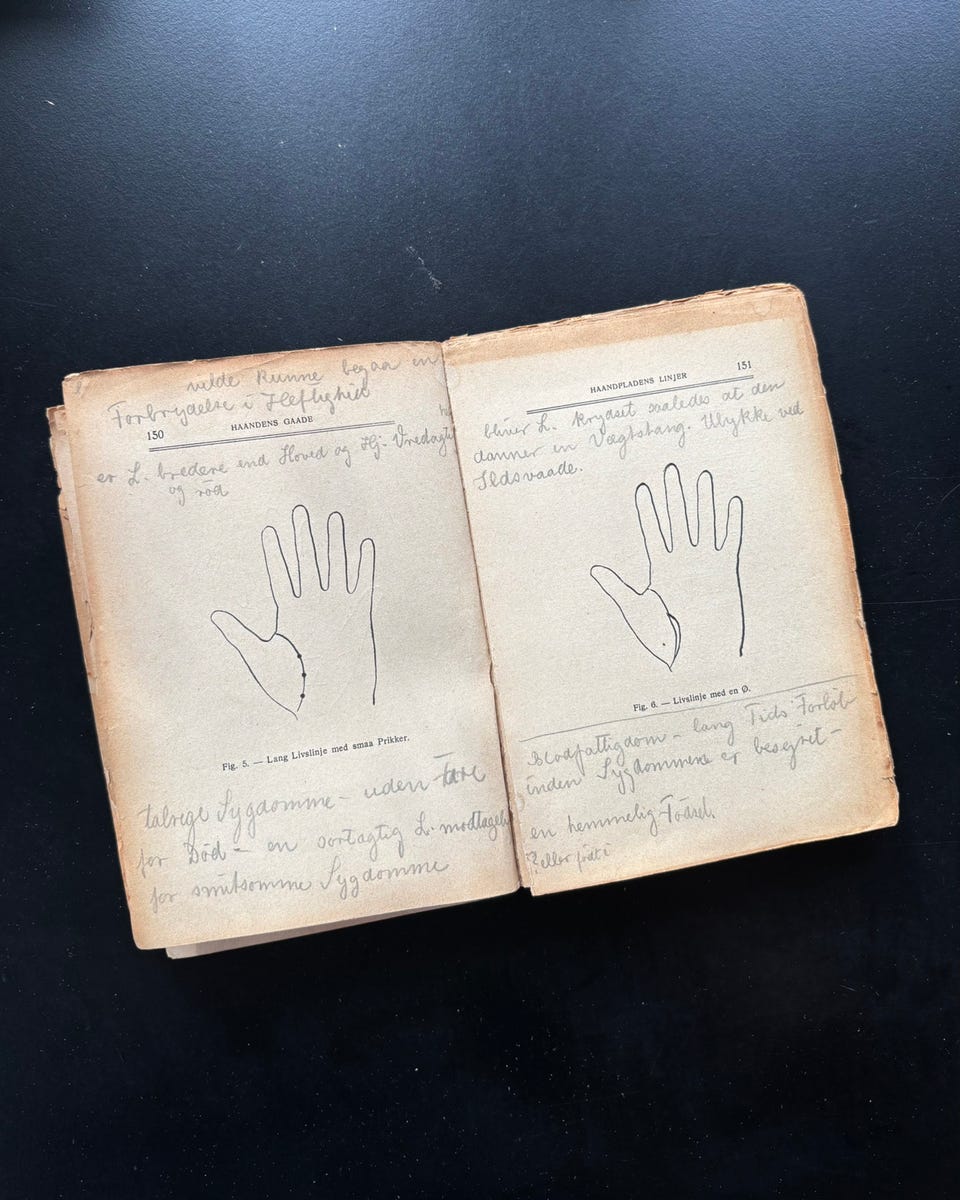 vilde kunne begaa en
Forbrydelse i Heftighed
150 HAANDENS GAADE
er L. bredere end Hoved og Hj. Vredagtig
og rød
Fig. 5. — Lang Livslinje med smaa Prikker.
talrige Sygdomme - uden Fare
for Død - en sortagtig L. modtagelig
for smitsomme Sygdomme
HAANDFLADENS LINJER 151
bliver L. krydset saaledes at den
danner en Vægtstang. Ulykke ved
Ildsvaade.
Fig. 6. — Livslinje med en Ø.
Blodfattigdom - lang Tids Forløb
inden Sygdommene er besejret -
en hemmelig Fødsel.
? eller